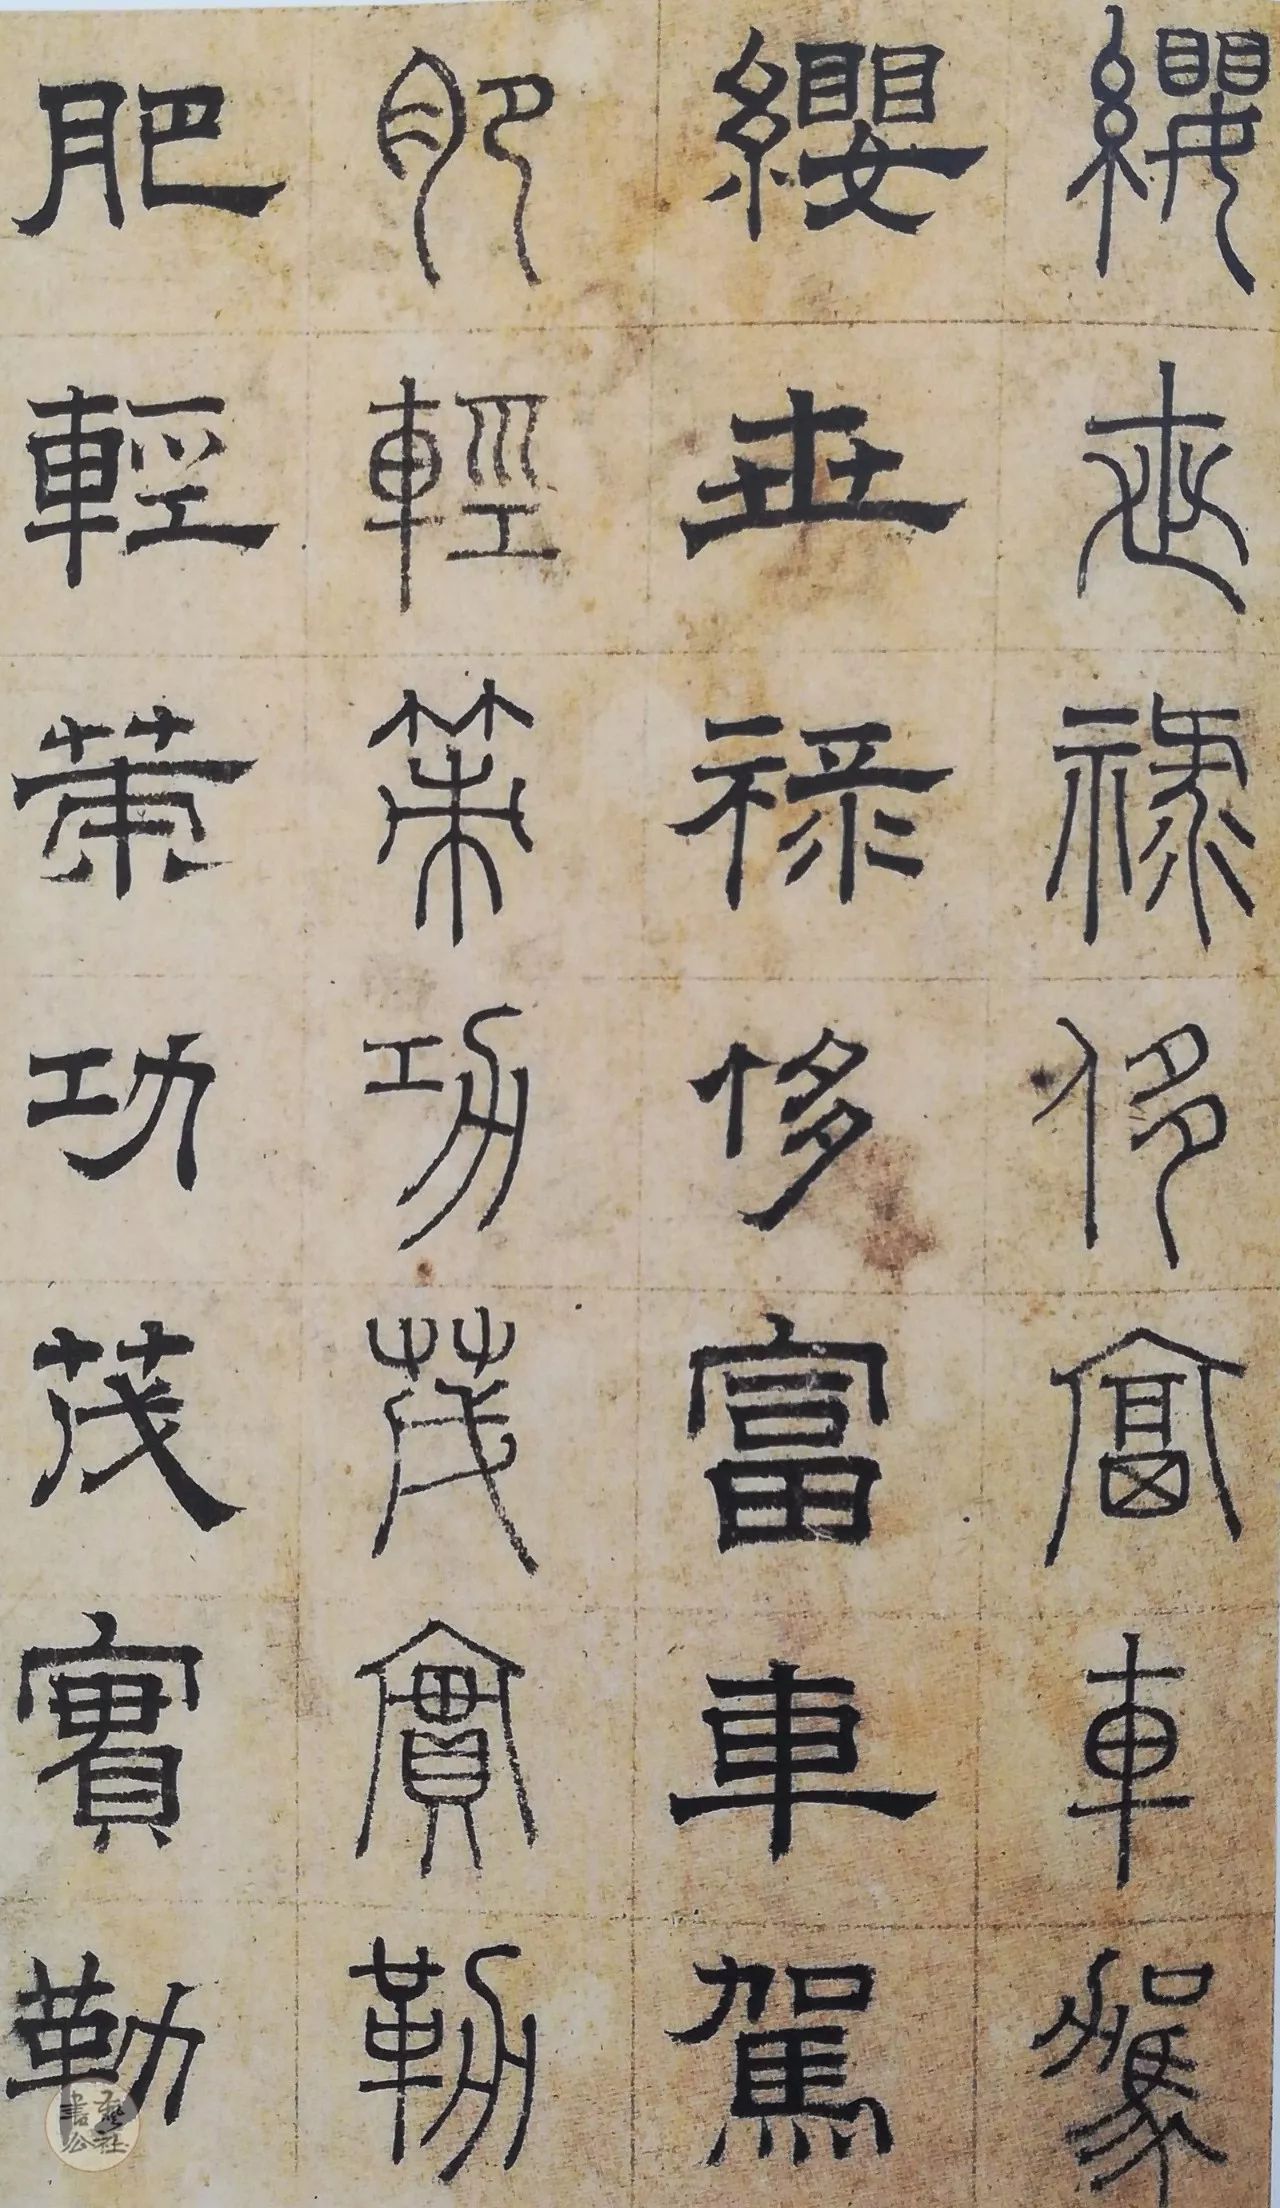 纓世祿侈富車駕
纓世祿侈富車駕
肥輕策功茂實勒
肥輕策功茂實勒
書藝公社